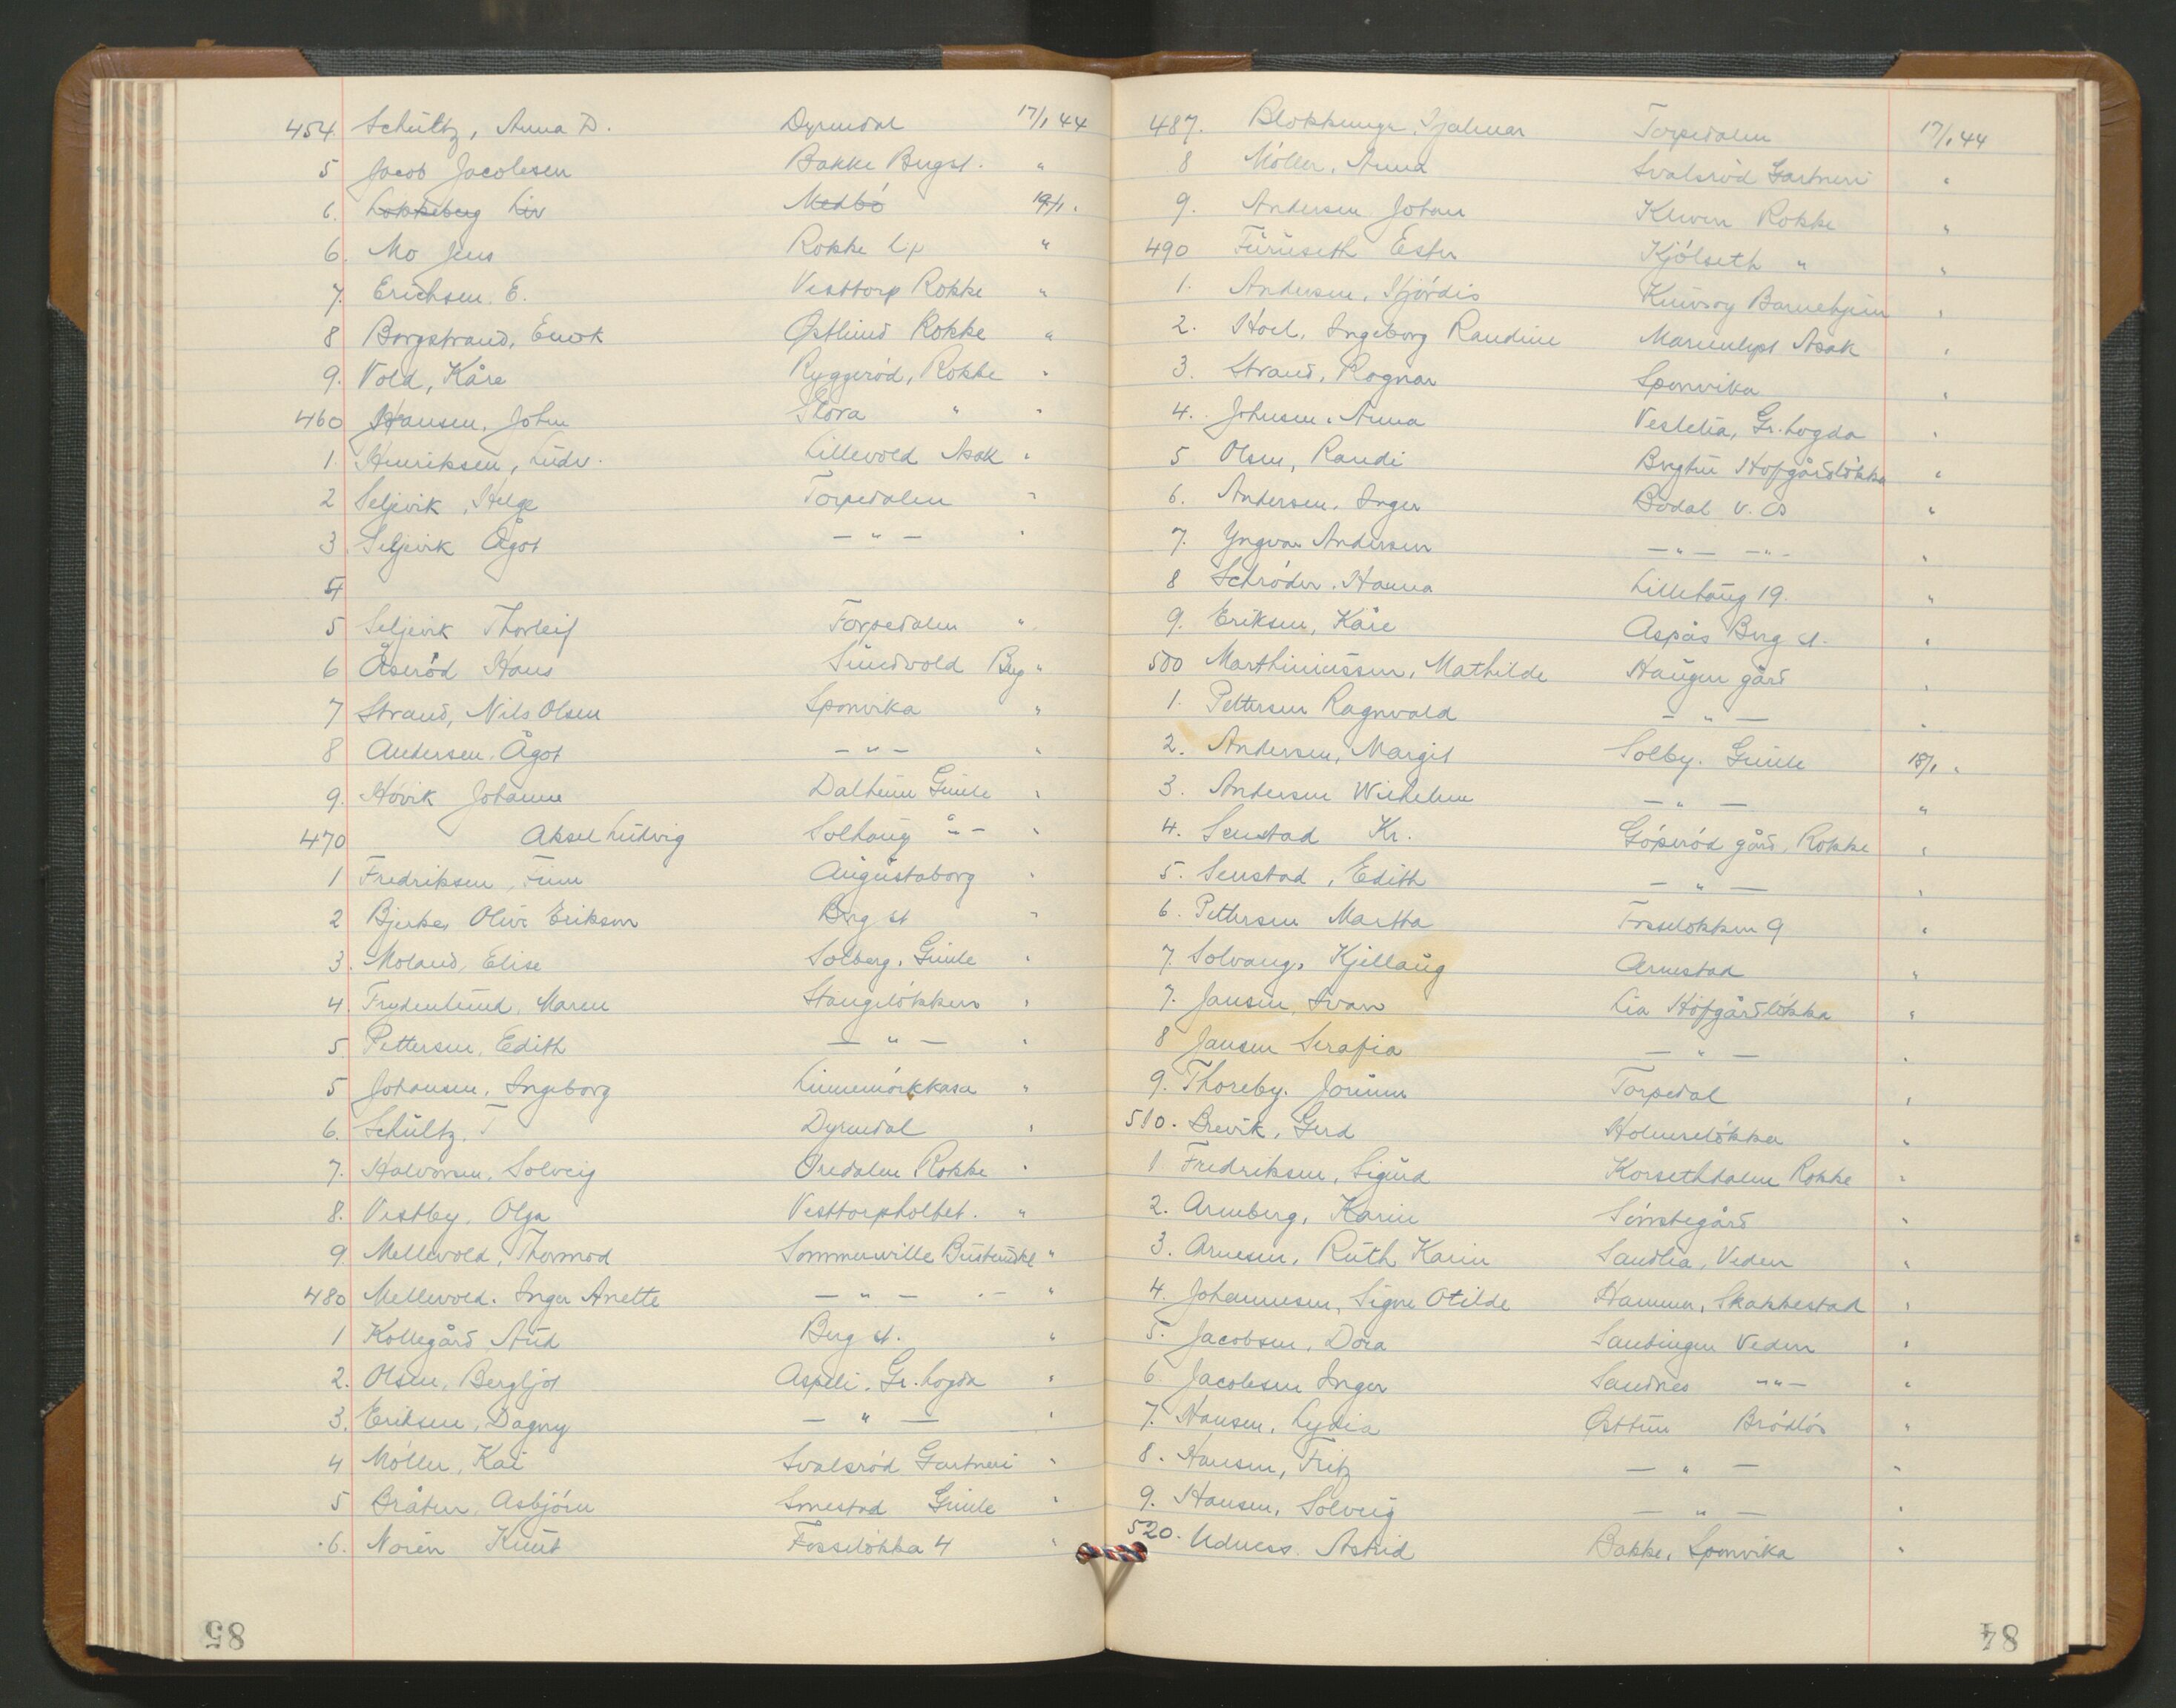 454 Schültz, Anna D. Dyrendal 17/1 44
5 Jacob Jacobsen Bakke Bergst. "
6. Lokkeberg Liv Medbö 19/1.
6. Mo Jens Rokke "
7. Erichsen. E. Vesttorp Rokke "
8 Borgstrand, Enok Østlund Rokke "
9. Vold, Kåre Ryggeröd, Rokke "
460 Hansen, John Flora " "
1. Henriksen, Ludv. Lillevold Asak "
2 Seljevik, Helge Torpedalen "
3 Seljevik Ågot — " — "
4
5 Seljevik Thorleif Torpedalen "
6 Åseröd Hans Sundvold Berg "
7 Strand, Nils Olsen Sponvika "
8 Andersen. Ågot — " — "
9. Hovik Johanne Dalheim Gimle "
470 Aksel Ludvig Solhaug "
1 Fredriksen, Finn Augustaborg "
2 Bjerke, Oliver Eriksen Berg st "
3. Moland, Elise Solberg. Gimle "
4. Frydenlund, Maren Stangelökken "
5 Pettersen, Edith — " — "
5 Johansen, Ingeborg "
6. Schültz, T Dyrendal "
7. Halvorsen, Solveig Oredalen Rokke "
8. Vestby, Olga Vesttorpholtet. "
9 Mellevold, Thormod Sommerville "
480 Mellevold. Inger Anette — " — "
1 Kollegård Aud Berg st. "
2. Olsen, Bergljot Aspeli. Gr. Logda "
3. Eriksen, Dagny — " — "
4 Möller, Kai Svalsröd Gartneri "
5 Bråten, Asbjörn Smestad Gimle "
6. Norén Knut Fosselökka 4 "
85
487. Hjalmar Torpedalen 17/1 44
8 Möller, Anna Svalsröd Gartneri "
9. Andersen Johan Rokke "
490 Furuseth Ester Kjölseth " "
1. Andersen, Hjördis Knivsøy Barnehjem "
2. Hoel, Ingeborg Randine Marienlyst Asak "
3. Strand, Ragnar Sponvika "
4. Johnsen, Anna Veslelia, Gr. Logda "
5 Olsen, Randi Hofgårdlökka "
6. Andersen, Inger Bödal v. Ås "
7. Yngvar Andersen — " — — " — "
8 Schröder. Hanna Lillehaug 19. "
9. Eriksen, Kåre Aspås Berg st. "
500 Marthiniussen, Mathilde Haugen gård "
1. Pettersen Ragnvald — " — "
2. Andersen, Margit Solby. Gimle 18/1 "
3. Andersen Wilhelm — " — "
4. Senstad Kr. Göseröd gård, Rokke "
5. Senstad, Edith — " — "
6. Pettersen Martha Fosselökken 9 "
7. Solvang, Kjellaug Arnestad "
7. Jansen, Ivan Lia Hofgårdlökka "
8 Jansen Serafia — " — "
9. Thoreby. Jörunn Torpedal "
510. Brevik, Gerd Holmselökka "
1 Fredriksen, Sigurd Korsethdalen Rokke "
2. Arneberg, Karin "
3. Arnesen, Ruth Karin Sandlia, Veden "
4. Johannesen, Signe Otilde Hammer, Skakkestad "
5. Jacobsen, Dora Veden "
6 Jacobsen Inger Sandnes — " — "
7. Hansen, Lydia Østtun Brödlös "
8. Hansen, Fritz — " — "
9. Hansen, Solveig — " — "
520. Udness. Astrid Bakke, Sponvika "
84